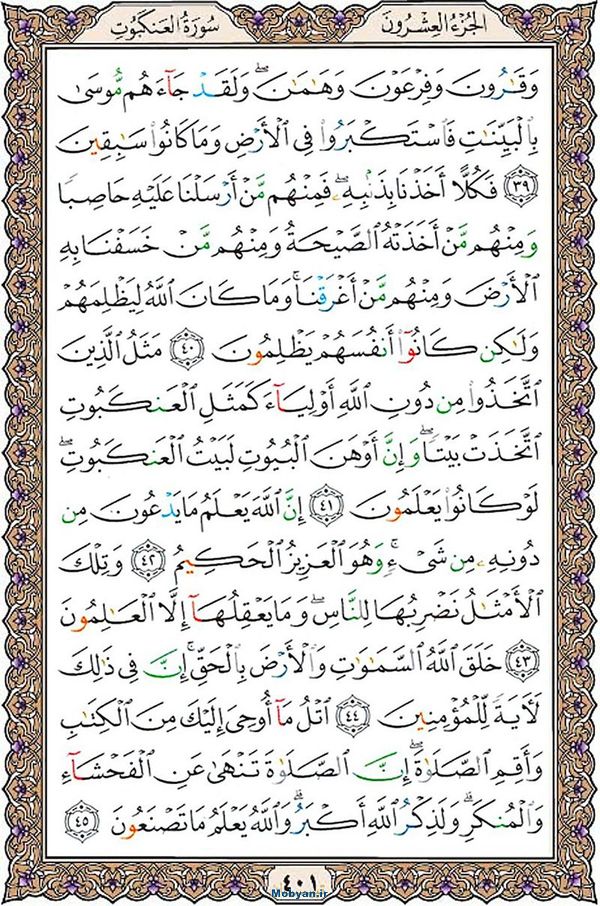 الجُزءُ العِشرُونَ
سُورَةُ العَنكَبُوتِ
وَقَٰرُونَ وَفِرْعَوْنَ وَهَٰمَٰنَ ۖ وَلَقَدْ جَآءَهُم مُّوسَىٰ
بِٱلْبَيِّنَٰتِ فَٱسْتَكْبَرُوا۟ فِى ٱلْأَرْضِ وَمَا كَانُوا۟ سَٰبِقِينَ
﴿٣٩﴾ فَكُلًّا أَخَذْنَا بِذَنۢبِهِۦ ۖ فَمِنْهُم مَّنْ أَرْسَلْنَا عَلَيْهِ حَاصِبًا
وَمِنْهُم مَّنْ أَخَذَتْهُ ٱلصَّيْحَةُ وَمِنْهُم مَّنْ خَسَفْنَا بِهِ
ٱلْأَرْضَ وَمِنْهُم مَّنْ أَغْرَقْنَا ۚ وَمَا كَانَ ٱللَّهُ لِيَظْلِمَهُمْ
وَلَٰكِن كَانُوٓا۟ أَنفُسَهُمْ يَظْلِمُونَ ﴿٤٠﴾ مَثَلُ ٱلَّذِينَ
ٱتَّخَذُوا۟ مِن دُونِ ٱللَّهِ أَوْلِيَآءَ كَمَثَلِ ٱلْعَنكَبُوتِ
ٱتَّخَذَتْ بَيْتًا ۖ وَإِنَّ أَوْهَنَ ٱلْبُيُوتِ لَبَيْتُ ٱلْعَنكَبُوتِ ۖ
لَوْ كَانُوا۟ يَعْلَمُونَ ﴿٤١﴾ إِنَّ ٱللَّهَ يَعْلَمُ مَا يَدْعُونَ مِن
دُونِهِۦ مِن شَىْءٍ ۚ وَهُوَ ٱلْعَزِيزُ ٱلْحَكِيمُ ﴿٤٢﴾ وَتِلْكَ
ٱلْأَمْثَٰلُ نَضْرِبُهَا لِلنَّاسِ ۖ وَمَا يَعْقِلُهَآ إِلَّا ٱلْعَٰلِمُونَ
﴿٤٣﴾ خَلَقَ ٱللَّهُ ٱلسَّمَٰوَٰتِ وَٱلْأَرْضَ بِٱلْحَقِّ ۚ إِنَّ فِى ذَٰلِكَ
لَءَايَةً لِّلْمُؤْمِنِينَ ﴿٤٤﴾ ٱتْلُ مَآ أُوحِىَ إِلَيْكَ مِنَ ٱلْكِتَٰبِ
وَأَقِمِ ٱلصَّلَوٰةَ ۖ إِنَّ ٱلصَّلَوٰةَ تَنْهَىٰ عَنِ ٱلْفَحْشَآءِ
وَٱلْمُنكَرِ ۗ وَلَذِكْرُ ٱللَّهِ أَكْبَرُ ۗ وَٱللَّهُ يَعْلَمُ مَا تَصْنَعُونَ ﴿٤٥﴾
٤٠١
Mobyan.ir